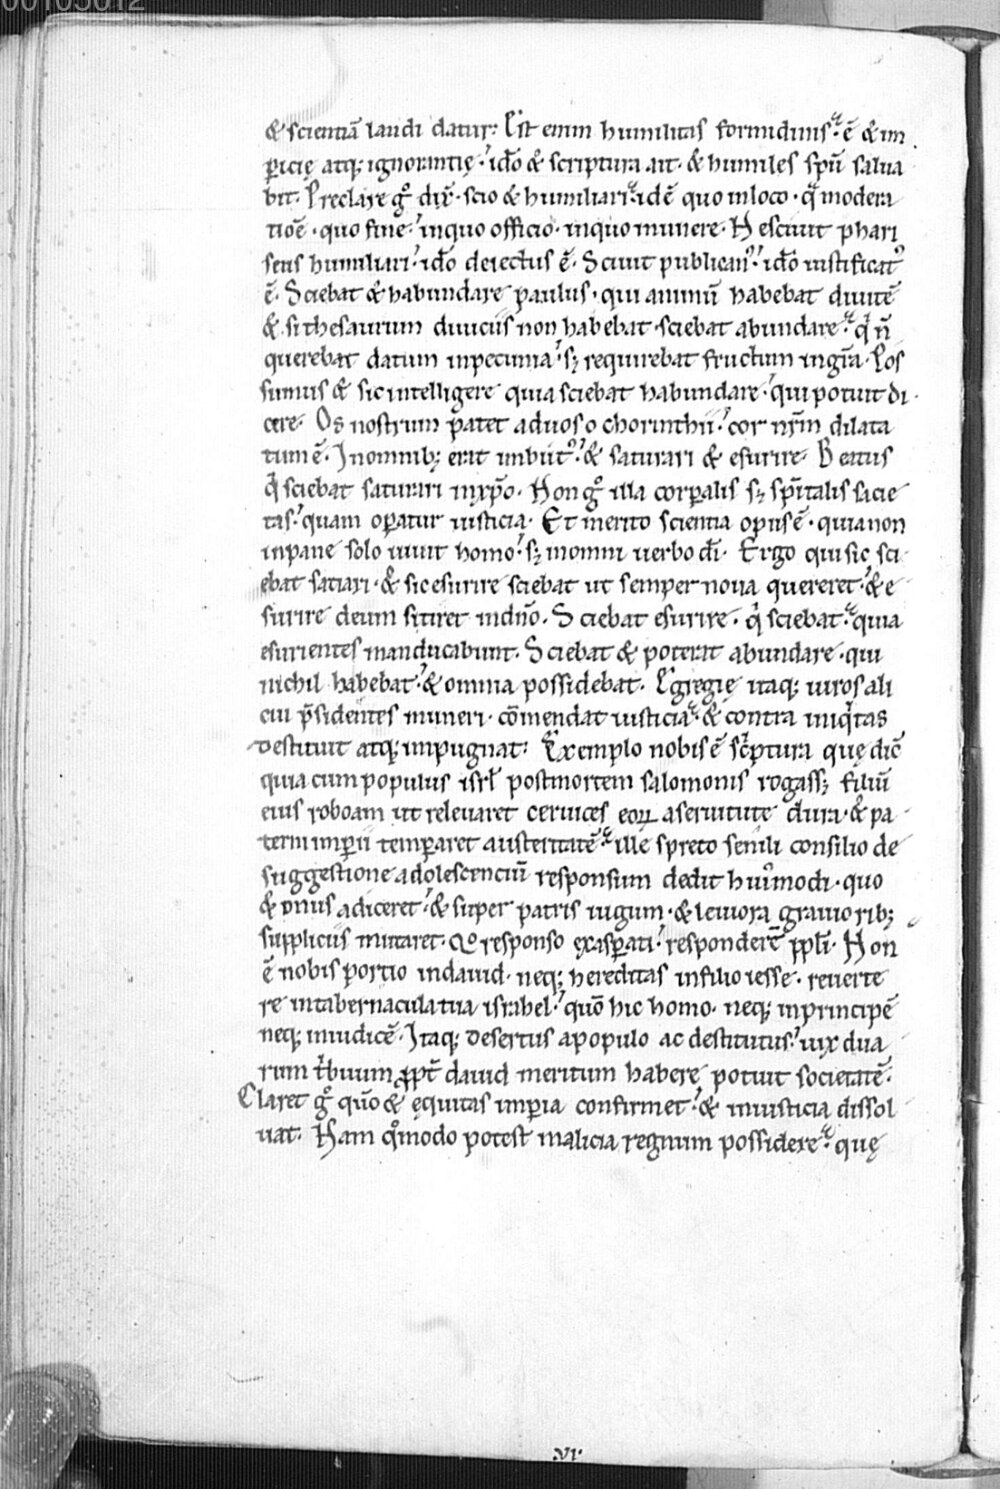 00105012
& scientiā laudi datur: Est enim humilitas formidinis. ē & im
pericię atq; ignorantię. idō & scriptura ait. & humiles spū salua
bit. Preclare gͦ dix̄. scio & humiliari. idē quo in loco. qͣ modera
tiōe. quo fine. in quo officio. in quo munere. Nesciuit phari
seus humiliari. idō deiectus ē. Sciuit publicanꝰ. idō iustificatꝰ
ē. Sciebat & habundare paulus. qui animū habebat diuitē
& si thesaurum diuiciis non habebat. sciebat abundare. qͥ n̄
querebat datum in pecunia. sꝫ requirebat fructum in grā. Pos
sumus & sic intelligere quia sciebat habundare. qui potuit di
cere. Os nostrum patet ad uos o chorinthii. cor nr̄m dilata
tum ē. In omnibꝫ erat imbutꝰ. & saturari & esurire. Beatus
qͥ sciebat saturari in xp̄o. Non gͦ illa corꝑalis sꝫ sp̄italis sacie
tas. quam oꝑatur iusticia. Et merito scientia opus ē. quia non
in pane solo uiuit homo. sꝫ in omni uerbo dī. Ergo qui sic sci
ebat satiari. & sic esurire sciebat ut semper noua quereret. & e
surire deum sitiret in dn̄o. Sciebat esurire. qͥ sciebat. quia
esurientes manducabunt. Sciebat & poterat abundare. qui
nichil habebat. & omnia possidebat. Egregię itaq; uiros ali
cui p̄sidentes muneri. cōmendat iusticia. & contra iniqͥtas
destituit atq; impugnat. Exemplo nobis ē scͥptura quę dic̄
quia cum populus isrl̄ post mortem salomonis rogassꝫ filiū
eius roboam ut releuaret ceruices eoꝝ a seruitute dura. & pa
terni imꝑii temꝑaret austeritatē. ille spreto senili consilio de
suggestione adolescenciū responsum dedit huiꝰmodi. quo
& onus adiceret. & super patris iugum. & leuiora grauioribꝫ
suppliciis mutaret. Qͦ responso exasꝑati. responderē ppl̄i. Non
ē nobis portio in dauid. neq; hereditas in filio iesse. reuerte
re in tabernacula tua israhel. quō hic homo. neq; in principē
neq; in iudicē. Itaq; desertus a populo ac destitutus. uix dua
rum tͥbuum ꝓpt̄ dauid meritum habere potuit societatē.
Claret gͦ quō & ęquitas imꝑia confirmet. & iniusticia dissol
uat. Nam qͦmodo potest malicia regnum possidere. quę
.VI.